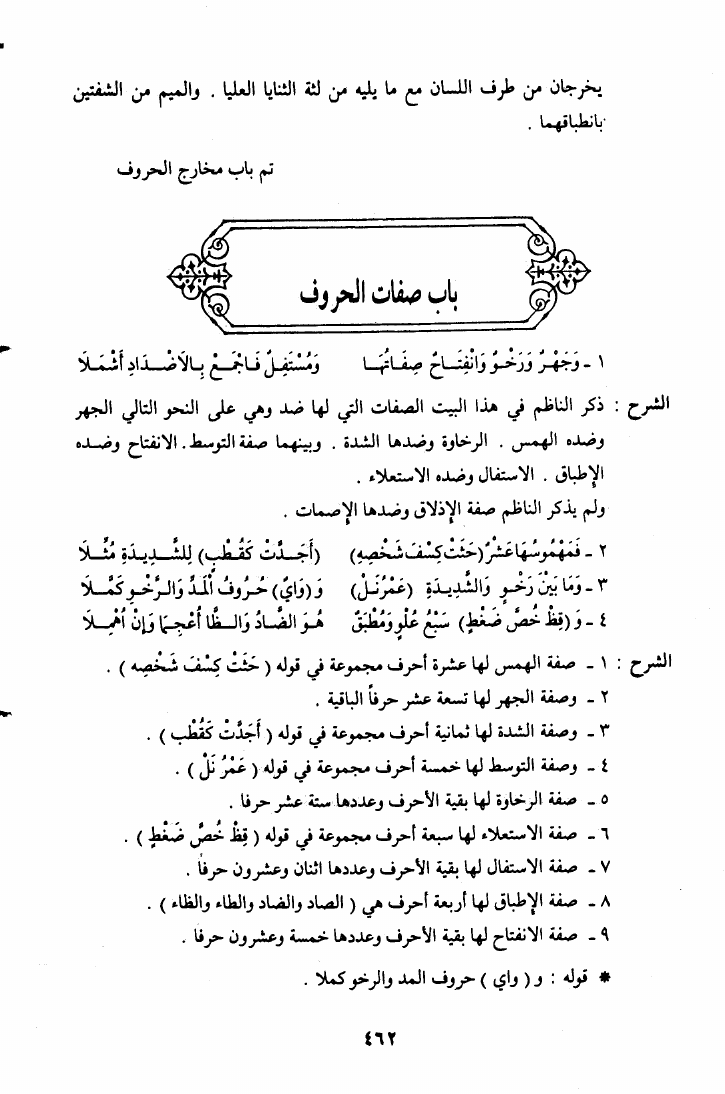 يخرجان من طرف اللسان مع ما يليه من لثة الثنايا العليا . والميم من الشفتين
بانطباقهما .
تم باب مخارج الحروف
باب صفات الحروف
١ ـ وَجَهْرٌ وَرَخْوٌ وَانْفِتَاحٌ صِفَاتُهَا وَمُسْتَفِلٌ فَاجْمَعْ بِالاَضْدَادِ أَشْمَلَا
الشرح : ذكر الناظم في هذا البيت الصفات التي لها ضد وهي على النحو التالي الجهر
وضده الهمس . الرخاوة وضدها الشدة . وبينهما صفة التوسط . الانفتاح وضده
الإطباق . الاستفال وضده الاستعلاء .
ولم يذكر الناظم صفة الإذلاق وضدها الإصمات .
٢ ـ فَمَهْمُوسُهَا عَشْرٌ (حَثَتْ كِسْفَ شَخْصِهِ) (أَجَدَّتْ كَقُطْبٍ) لِلشَّدِيدَةِ مُثِّلَا
٣ ـ وَمَا بَيْنَ رَخْوٍ وَالشَّدِيدَةِ (عَمْرُنَلْ) وَ (وَايٌ) حُرُوفُ الْمَدِّ وَالرَّخْوِ كَمَّلَا
٤ ـ وَ (قِظْ خُصَّ ضَغْطٍ) سَبْعُ عُلْوٍ وَمُطْبَقٌ هُوَ الضَّادُ وَالظَّا أُعْجِمَا وَإِنْ اُهْمِلَا
الشرح : ١ ـ صفة الهمس لها عشرة أحرف مجموعة في قوله ( حَثَتْ كِسْفَ شَخْصِه ) .
٢ ـ وصفة الجهر لها تسعة عشر حرفاً الباقية .
٣ ـ وصفة الشدة لها ثمانية أحرف مجموعة في قوله ( أَجَدَّتْ كَقُطْب ) .
٤ ـ وصفة التوسط لها خمسة أحرف مجموعة في قوله ( عَمْرُ نَلْ ) .
٥ ـ صفة الرخاوة لها بقية الأحرف وعددها ستة عشر حرفا .
٦ ـ صفة الاستعلاء لها سبعة أحرف مجموعة في قوله ( قِظْ خُصَّ ضَغْطٍ ) .
٧ ـ صفة الاستفال لها بقية الأحرف وعددها اثنان وعشرون حرفاً .
٨ ـ صفة الإطباق لها أربعة أحرف هي ( الصاد والضاد والطاء والظاء ) .
٩ ـ صفة الانفتاح لها بقية الأحرف وعددها خمسة وعشرون حرفا .
* قوله : و ( واي ) حروف المد والرخو كملا .
٤٦٢